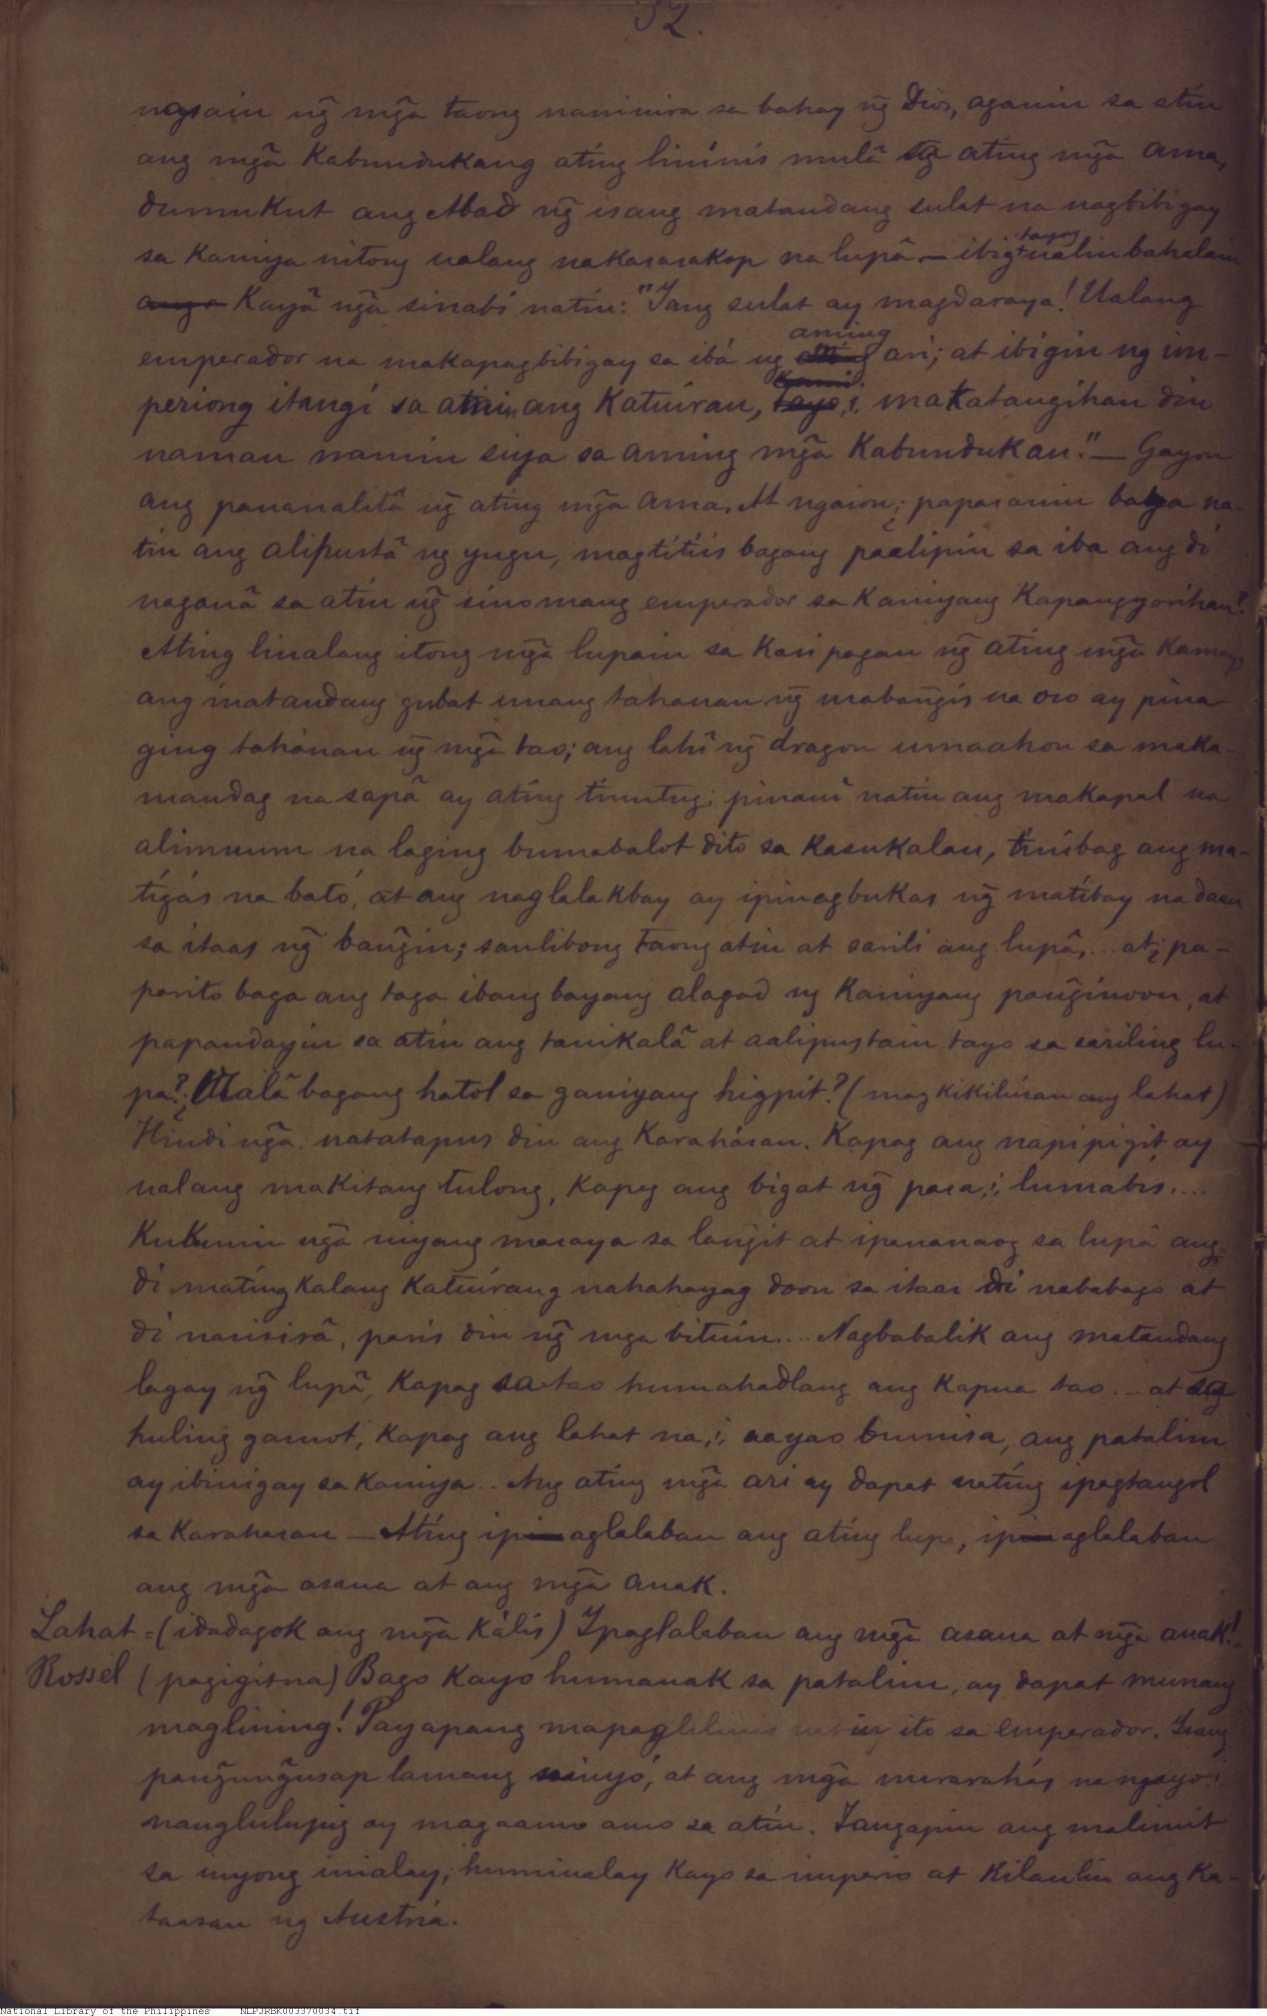 32.
ngain ng̃ mg̃a taong naninira sa bahay ng̃ Dios, agawin sa atin
ang mg̃a Kabundukang ating lininis mulâ sa ating mg̃a ama,
dumukut ang Abad ng̃ isang matandang sulat na nagbibigay
sa Kaniya nitong ualang nakasasakop na lupâ — ibig tayong ualin bahalain
ang Kayâ ng̃a sinabi natin: "Iang sulat ay magdaraya! Ualang
emperador na makapagbibigay sa ibá ng aming ari; at ibigin ng im-
periong itangí sa atin, ang Katuiran, tayo, i, matatangihan din
naman namin siya sa aming mg̃a Kabundukan." — Gayon
ang pananalitâ ng̃ ating mg̃a ama. At ngaion; ¿papasanin baga na-
tin ang alipustâ ng yugu, magtitiis bagang paalipin sa iba ang di
nagauâ sa atin ng̃ sinomang emperador sa Kaniyang Kapangyarihan?
Ating linalang itong mg̃a lupain sa Kasipagan ng̃ ating mg̃a Kamay,
ang matandang gubat unang tahanan ng̃ mabang̃is na oso ay pina
ging tahanan ng̃ mg̃a tao; ang lahî ng̃ dragon umaahon sa maka-
mandag na sapâ ay ating tinutug; pinauî natin ang makapal na
alimuum na laging bumabalot dito sa Kasukalan, tinibag ang ma-
tigás na bató, at ang naglalakbay ay ipinagbukas ng̃ matibay na daan
sa itaas ng̃ bang̃in; sanlibong taong atin at sarili ang lupâ, ... at ¿pa-
parito baga ang taga ibang bayang alagad ng Kaniyang pang̃inoon, at
papandayin sa atin ang tanikalâ at aalipustain tayo sa sariling lu-
pa? ¿Ualâ bagang hatol sa ganiyang higpit? (mag kikilusan ang lahat)
Hindi ng̃a. natatapus din ang Karahásan. Kapag ang napipigit ay
ualang makitang tulong, Kapag ang bigat ng̃ pasa,i, lumabis....
Kukunin ng̃a niyang masaya sa lang̃it at ipananaog sa lupâ ang
di matingkalang Katuirang nahahayag doon sa itaas di nababago at
di nasisirâ, paris din ng̃ mga bituin.... Nagbabalik ang matandang
lagay ng̃ lupâ, Kapag sa tao humahadlang ang Kapua tao... at sa
huling gamot, Kapag ang lahat na,i, aayao bumisa, ang patalim
ay ibinigay sa Kaniya.. Ang ating mg̃a ari ay dapat nating ipagtangol
sa Karahasan — Ating ipaglalaban ang ating lupa, ipaglalaban
ang mg̃a asaua at ang mg̃a anak.
Lahat = (idadagok ang mg̃a Kális) Ipaglalaban ang mg̃a asaua at mg̃a anak!
Rossel (pagigitna) Bago Kayo humauak sa patalim, ay dapat munang
maglining! Payapang mapaglilinis natin ito sa emperador. Isang
pang̃ung̃usap lamang ninyó, at ang mg̃a mararahás na ngayo,i,
nanglulupig ay magaamo amo sa atin. Tangapin ang malimit
sa inyong inialay; humiualay Kayo sa imperio at Kilanlin ang Ka-
taasan ng Austria.
National Library of the Philippines NLPJRBK003370034.tif